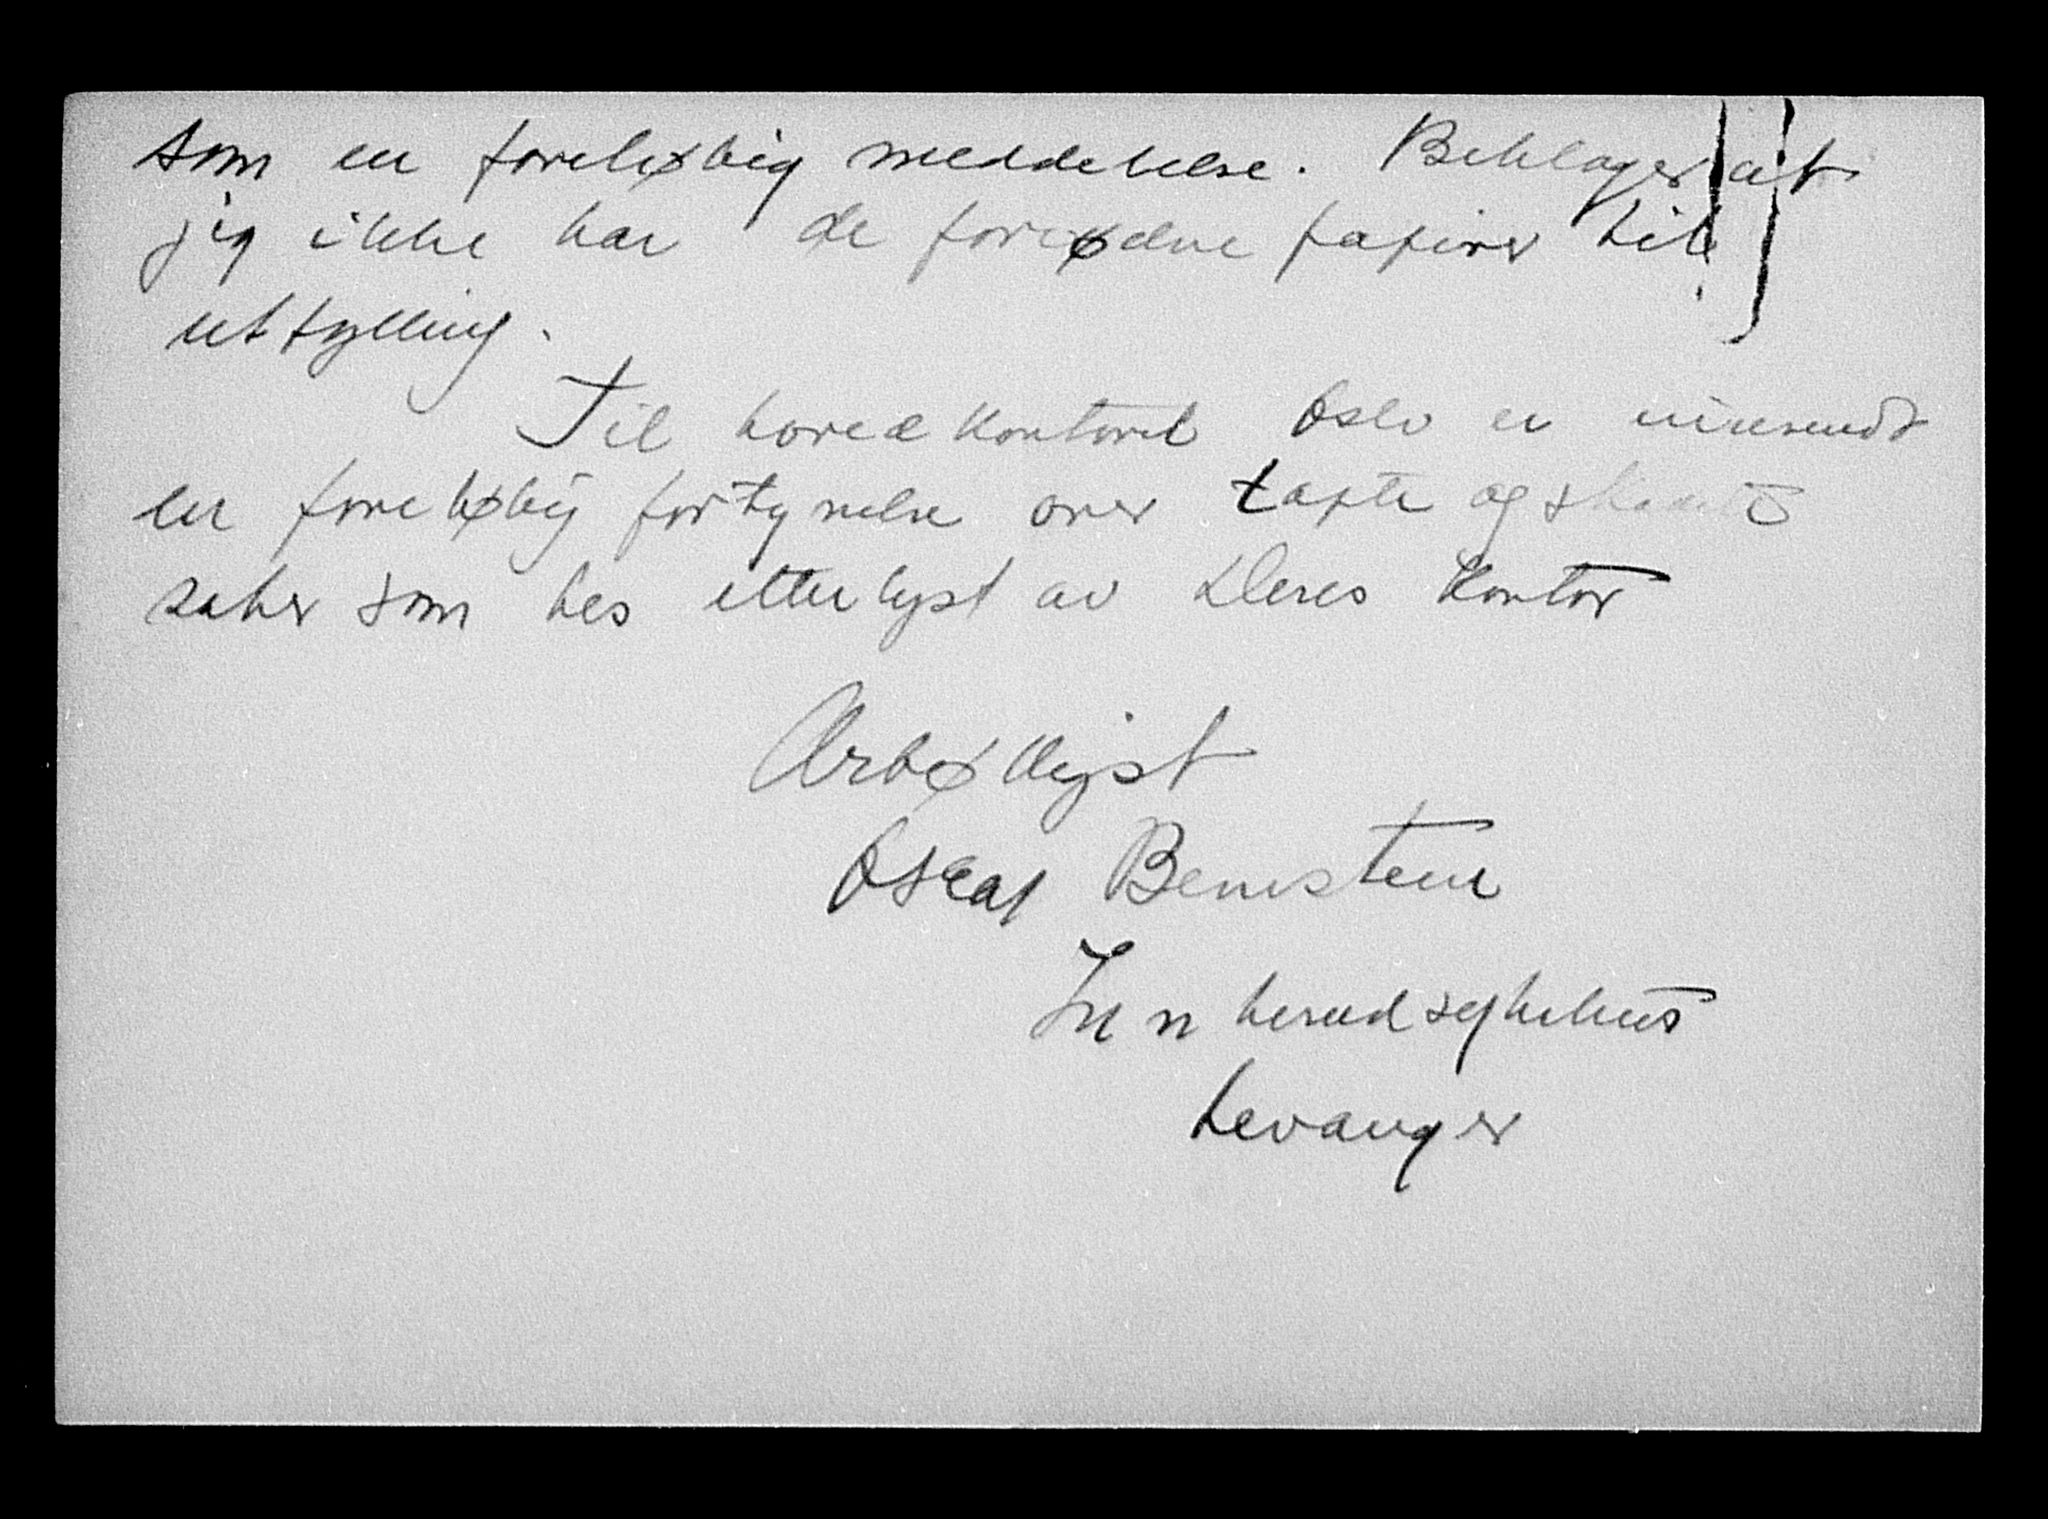 som en foreløbig meddelelse. Beklager at
jeg ikke har de fornødne papirer til
utfylling.
Til hovedkontoret Oslo er innsendt
en foreløbig fortegnelse over tapte og skadde
saker som bes etterlyst av Deres Kontor
Ærbødligst
Oscar Bernstein
Innherred sykehus
Levanger